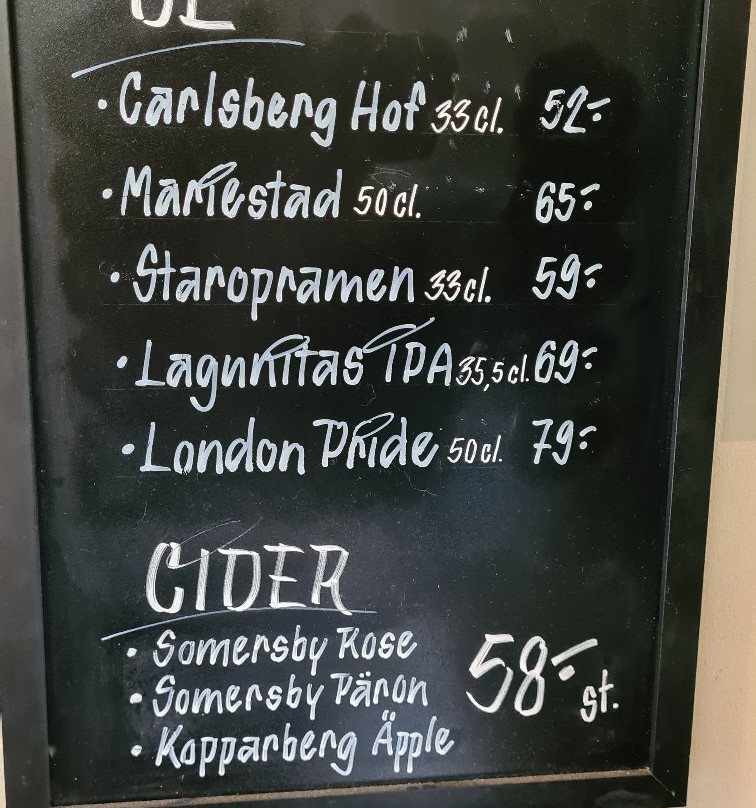 ÖL
• Carlsberg Hof 33 cl. 52:-
• Mariestad 50 cl. 65:-
• Staropramen 33 cl. 59:-
• Lagunitas IPA 35,5 cl. 69:-
• London Pride 50 cl. 79:-
CIDER
• Somersby Rose
• Somersby Päron 58:- st.
• Kopparberg Äpple